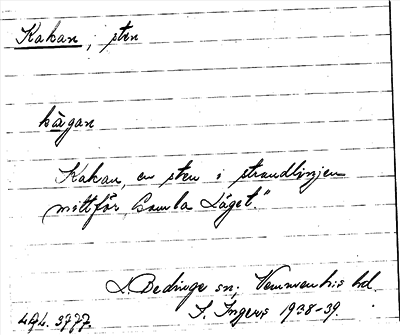 Kakan, sten
kågan
Kakan, en sten i strandlinjen
mittför "Gamla Läget."
L. Beddinge sn, Vemmenhös hd.
S. Ingers 1938-39